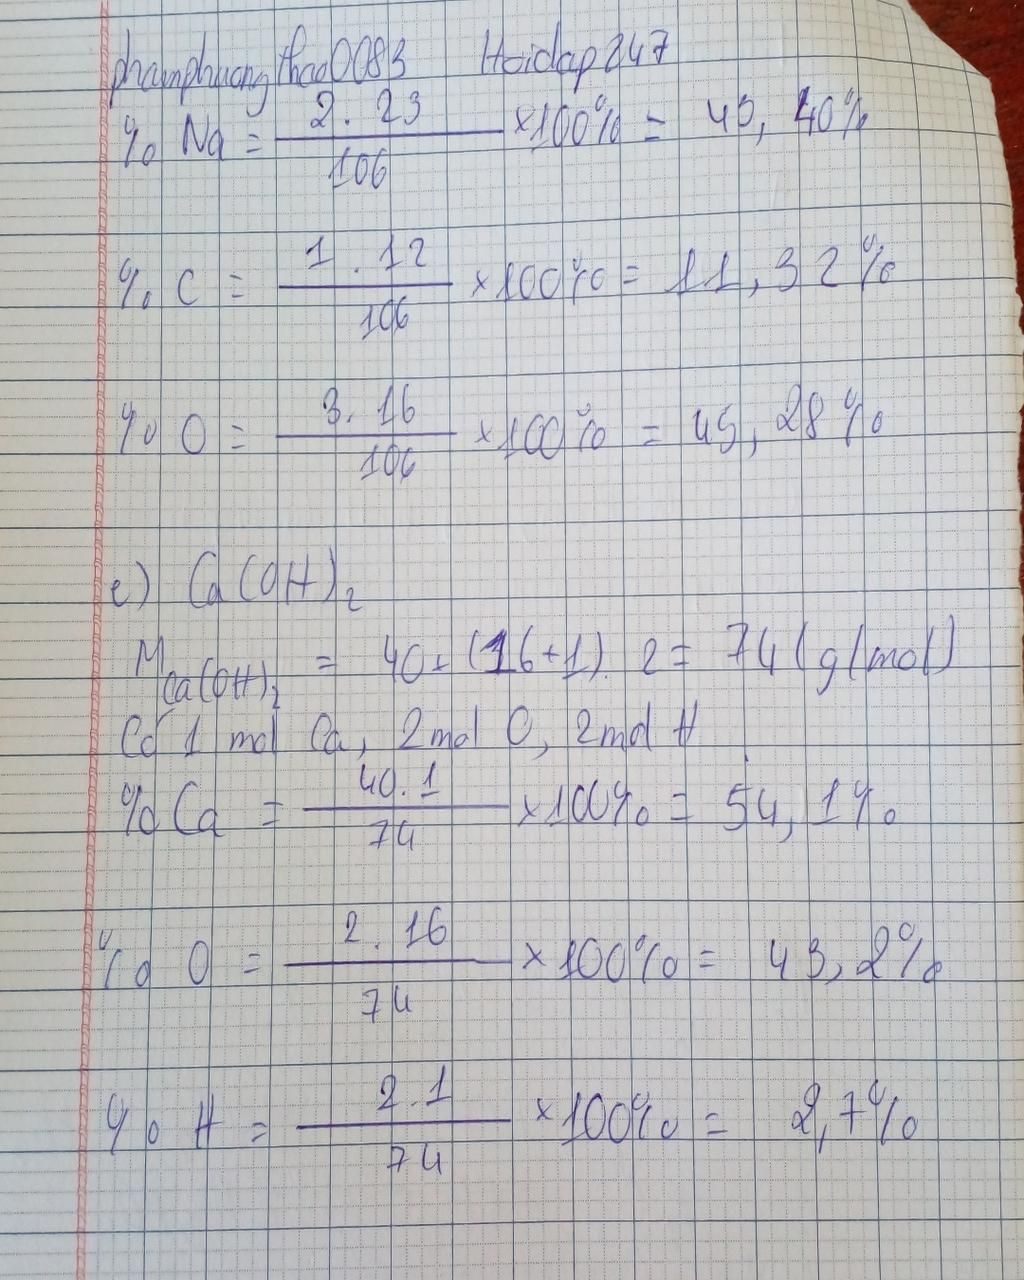 phamphuongthao0083 Hoidap247
% Na = 2.23/106 ×100% = 43,40%
% C = 1.12/106 ×100% = 11,32%
% O = 3.16/106 ×100% = 45,28%
e) Ca(OH)₂
M Ca(OH)₂ = 40+(16+1).2 = 74 (g/mol)
Có 1 mol Ca, 2mol O, 2mol H
% Ca = 40.1/74 ×100% = 54,1%
% O = 2.16/74 ×100% = 43,2%
% H = 2.1/74 ×100% = 2,7%